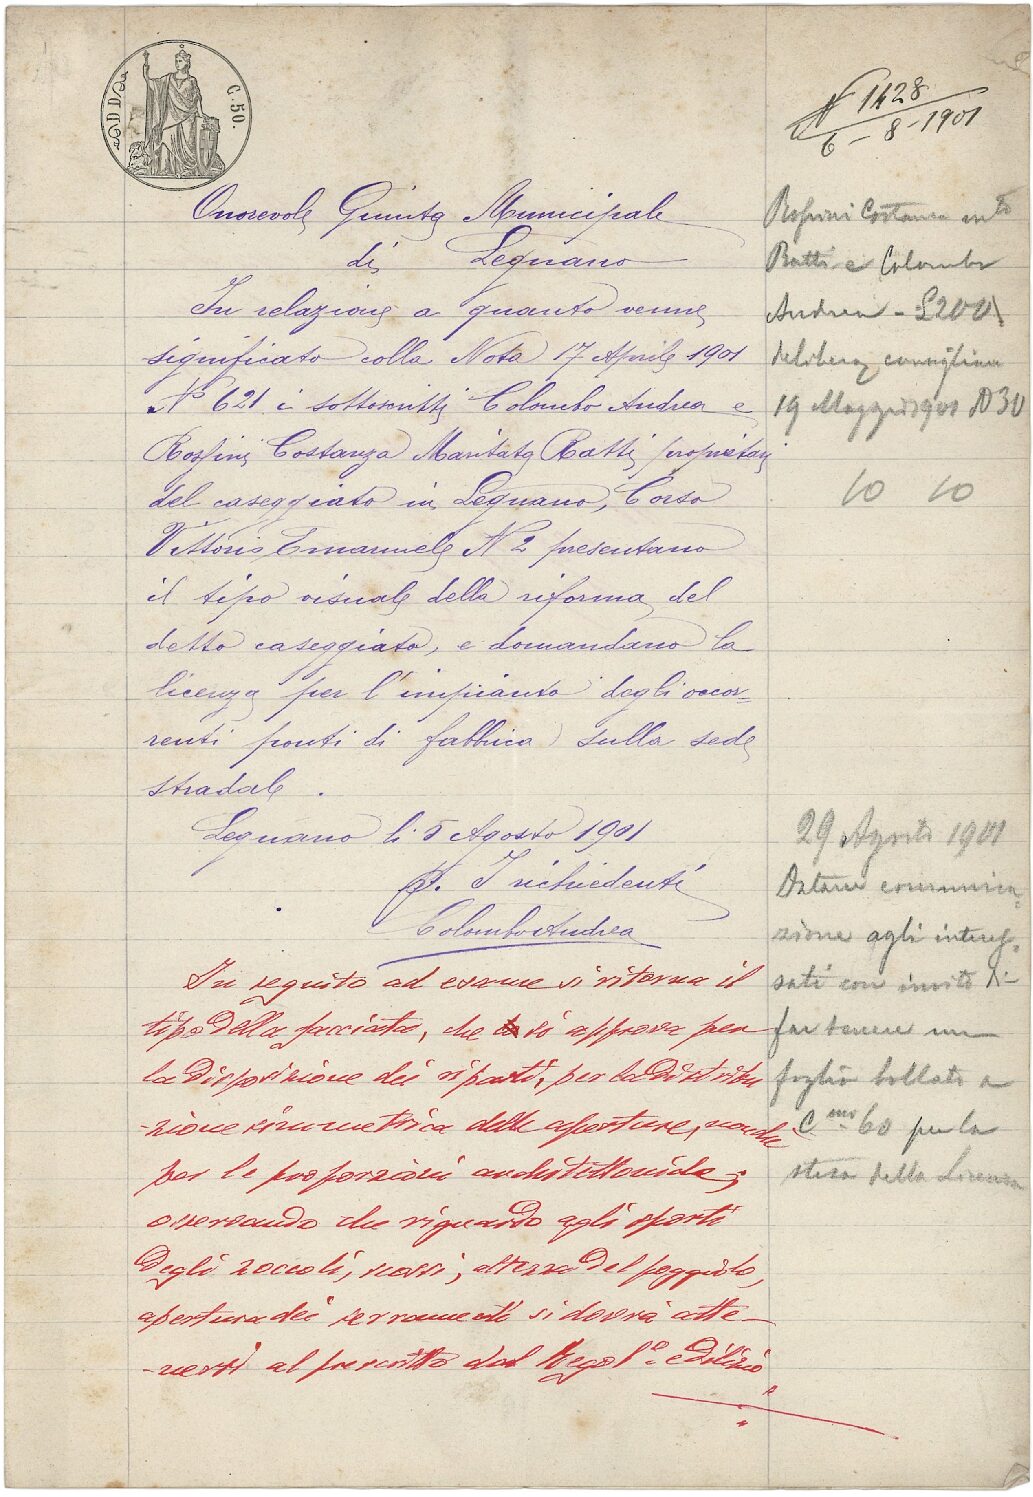 C. 50.
N 1428
6 - 8 - 1901
Onorevole Giunta Municipale
di Legnano
In relazione a quanto venne
significato colla Nota 17 Aprile 1901
N° 621 i sottoscritti Colombo Andrea e
Rossini Costanza Maritata Ratti proprietari
del caseggiato in Legnano, Corso
Vittorio Emanuele N 2 presentano
il tipo visuale della riforma del
detto caseggiato, e domandano la
licenza per l'impianto degli occor=
renti ponti di fabbrica sulla sede
stradale.
Legnano li 5 Agosto 1901
I richiedenti
Colombo Andrea
In seguito ad esame si ritorna il
tipo della facciata, che si approva per
la disposizione dei riparti, per la distribu
-zione simmetrica delle aperture, nonchè
per le proporzioni architettoniche;
osservando che riguardo agli sporti
degli zoccoli, altezza del poggiolo,
apertura dei serramenti si dovrà atte-
-nersi al prescritto dal Regol.° edilizio
Rossini Costanza
Ratti e Colombo
Andrea - £200
delibera consigliare
19 Maggio 1901 N 30
10 10
29 Agosto 1901
Datane comunica=
zione agli interes=
sati con invito di
far tenere un
foglio bollato a
C.mi 60 per la
stesa della Licenza